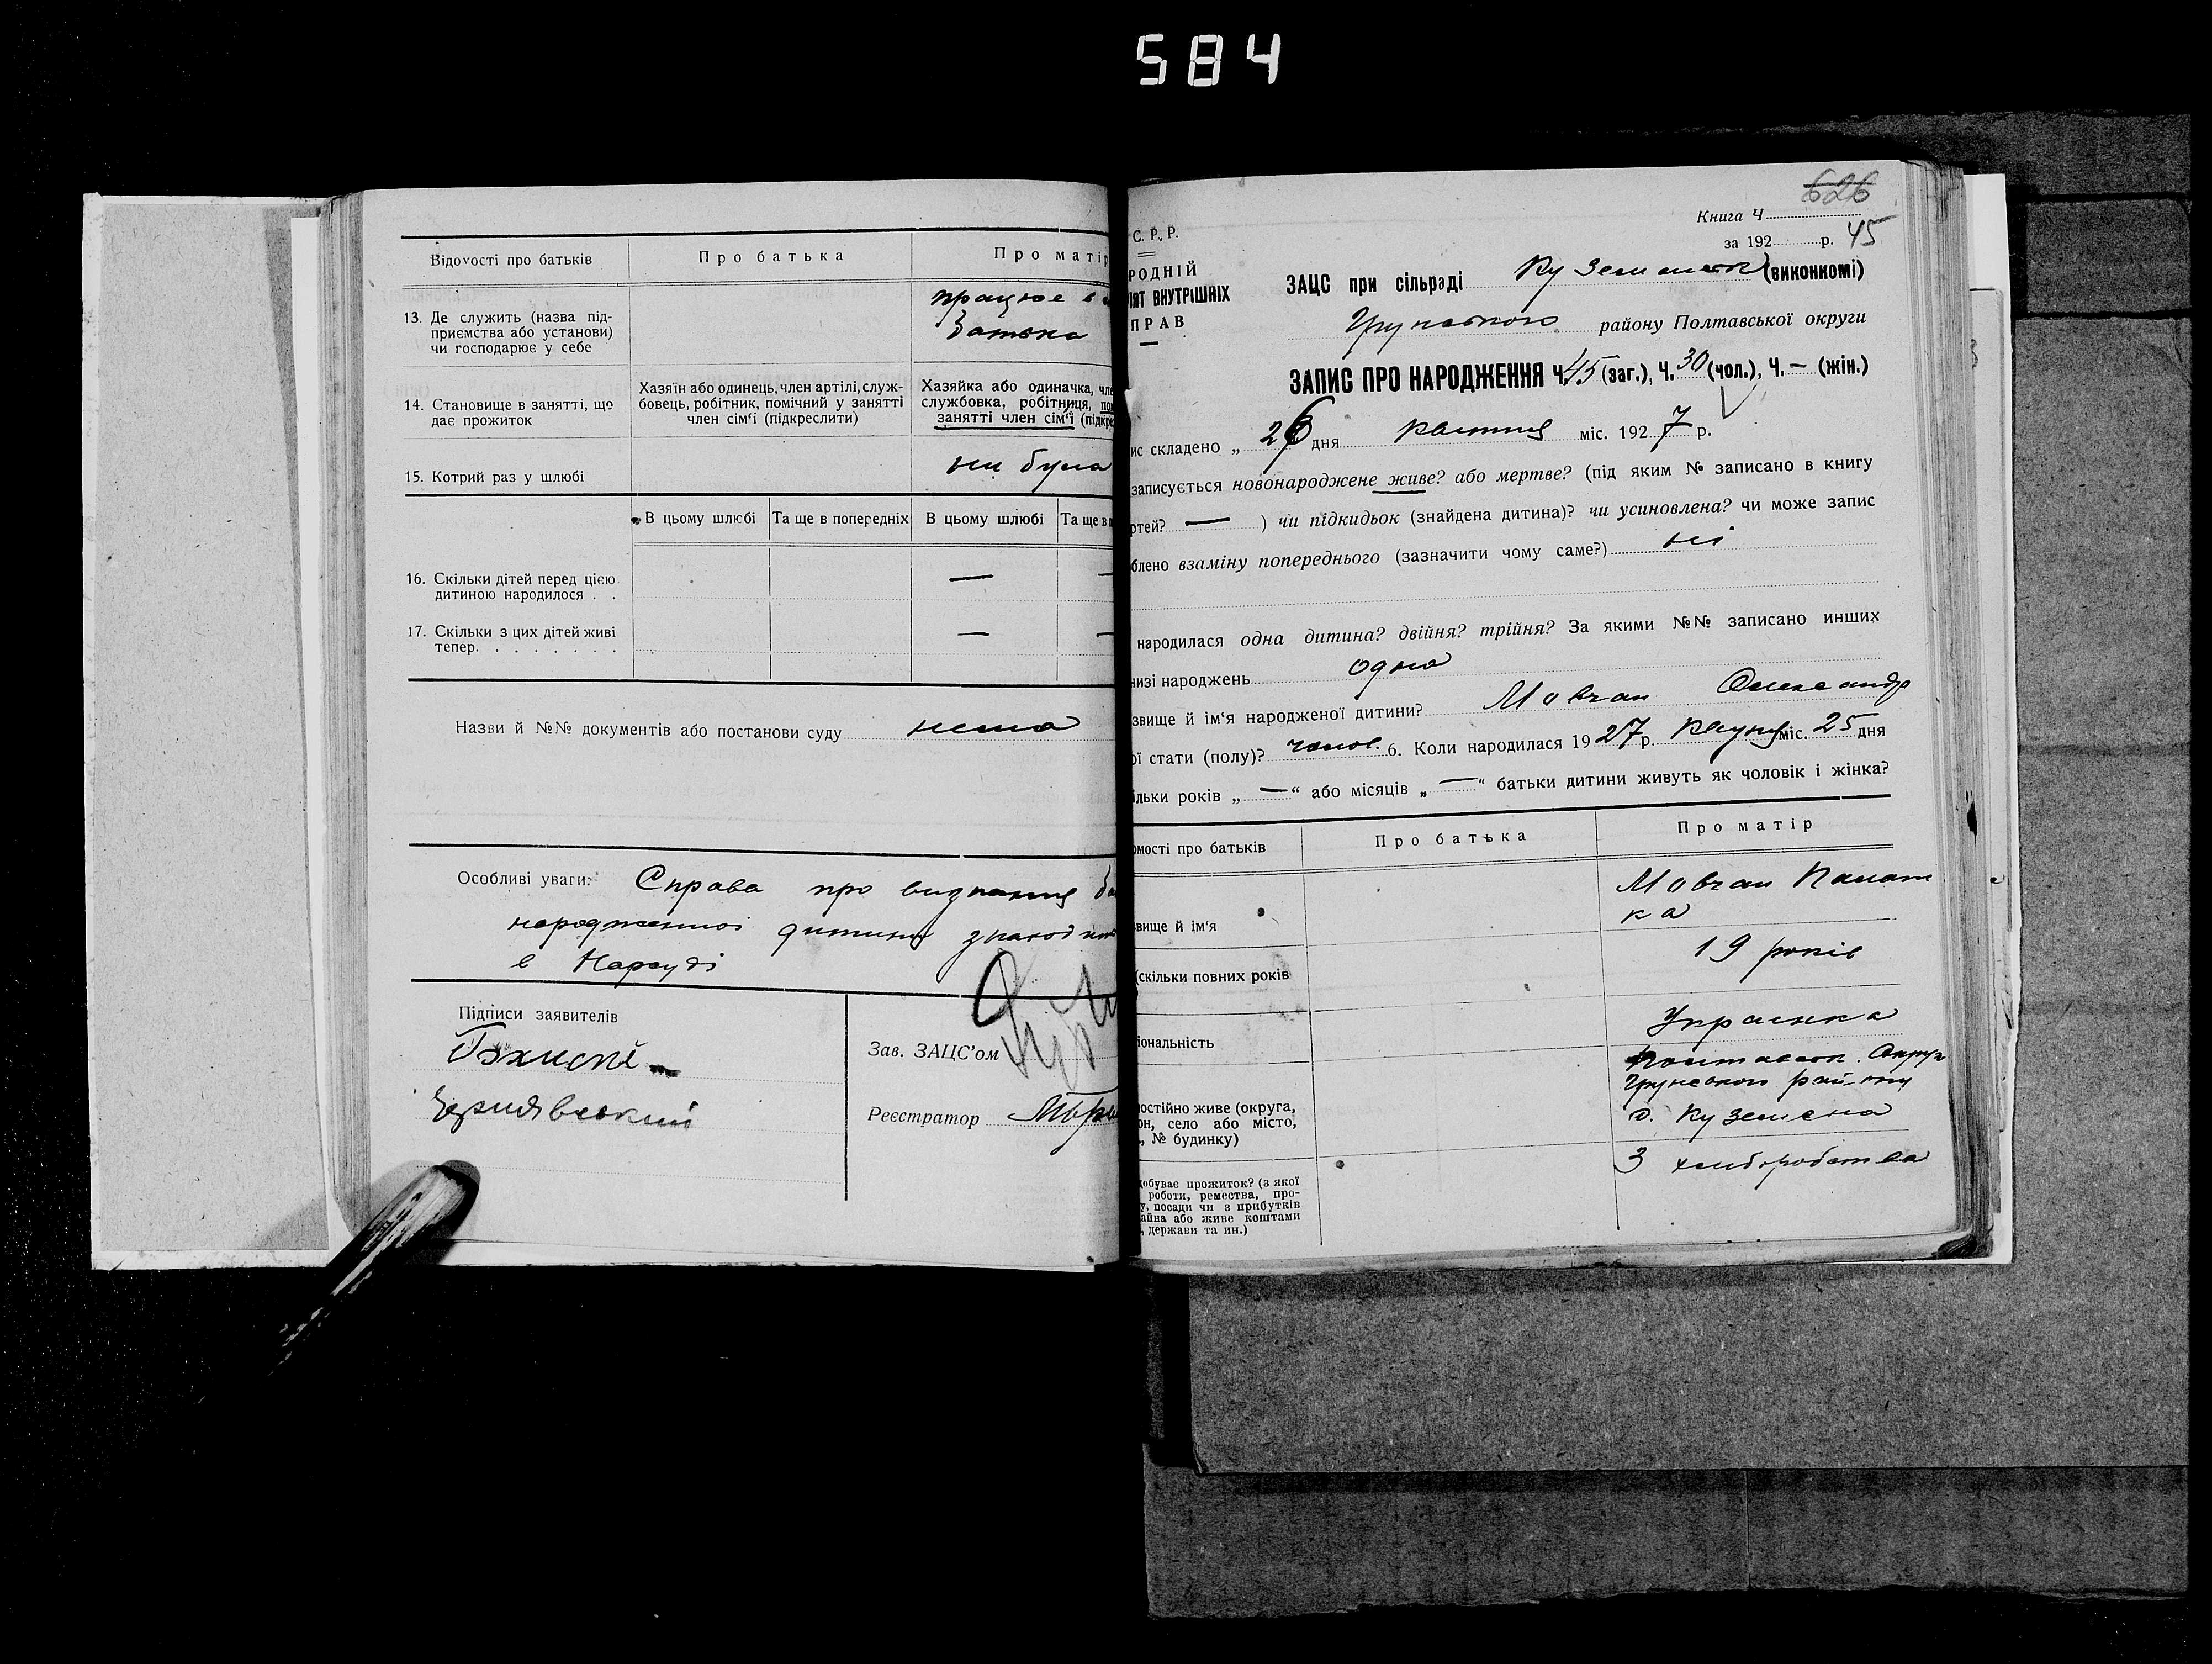 584
Відомості про батьків
Про батька
Про матір
13. Де служить (назва під-
приємства або установи)
чи господарює у себе
працює в
батька
14. Становище в занятті, що
дає прожиток
Хазяїн або одинець, член артілі, служ-
бовець, робітник, помічний у занятті
член сім'ї (підкреслити)
Хазяйка або одиначка, чле
службовка, робітниця, пом
занятті член сім'ї (підкре
15. Котрий раз у шлюбі
ни була
В цьому шлюбі
Та ще в попередніх
В цьому шлюбі
Та ще в
16. Скільки дітей перед цією
дитиною народилося . .
—
—
17. Скільки з цих дітей живі
тепер. . . . . . . .
—
—
Назви й №№ документів або постанови суду нема
Особливі уваги: Справа про визнання ба
народженної дитини знаход
в Нарсуді
Підписи заявителів
Чернявський
Зав. ЗАЦС'ом
Реєстратор
626
Книга Ч
за 192 р. 45
С. Р. Р.
РОДНІЙ
ІЯТ ВНУТРІШНІХ
ПРАВ
ЗАЦС при сільраді Куземенськ (виконкомі)
Грунського району Полтавської округи
ЗАПИС ПРО НАРОДЖЕННЯ Ч. 45 (заг.), Ч. 30 (чол.), Ч. — (жін.)
ис складено „ 26 дня квітня міс. 1927 р.
записується новонароджене живе? або мертве? (під яким № записано в книгу
ртей? — ) чи підкидьок (знайдена дитина)? чи усиновлена? чи може запис
блено взаміну попереднього (зазначити чому саме?) ні
народилася одна дитина? двійня? трійня? За якими №№ записано инших
низі народжень одна
звище й ім'я народженої дитини? Мовчан Олександр
ої стати (полу)? чолов. 6. Коли народилася 1927 р. міс. 25 дня
ільки років „ — “ або місяців „ — “ батьки дитини живуть як чоловік і жінка?
омості про батьків
Про батька
Про матір
звище й ім'я
Мовчан Палаж
ка
(скільки повних років
19 років
іональність
Українка
постійно живе (округа,
он, село або місто,
, № будинку)
Полтавськ. Округ
Грунського рай-ону
с. Куземена
добуває прожиток? (з якої
роботи, ремества, про-
у, посади чи з прибутків
айна або живе коштами
, держави та ин.)
З хліборобства